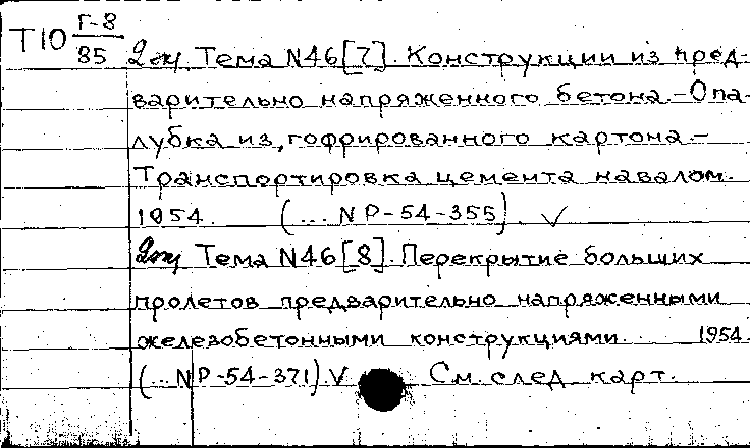 Т10 Г-8/85
2 эк. Тема N46[7]. Конструкции из пред-
варительно напряженного бетона.-Опа-
лубка из, гофрированного картона-
Транспортировка цемента навалом.
1954. (... NР-54-355) V
2 эк. Тема N46[8]. Перекрытие больших
пролетов предварительно напряженными
железобетонными конструкциями. 1954.
(... NР-54-371) V См. след. карт.